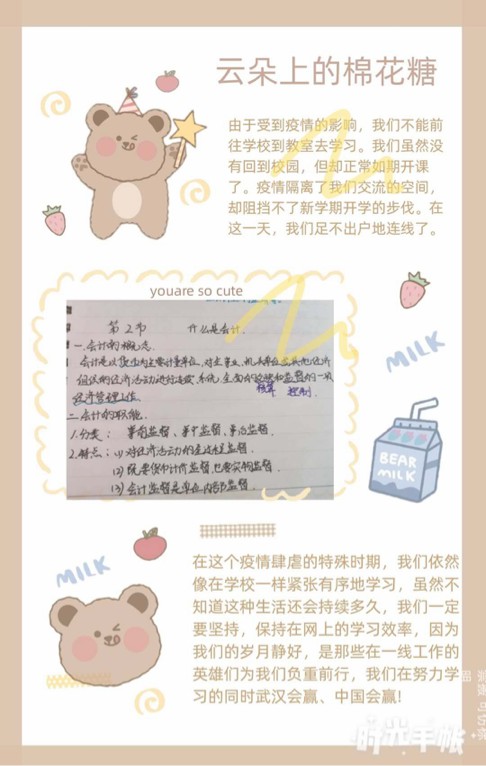 云朵上的棉花糖
由于受到疫情的影响，我们不能前
往学校到教室去学习。我们虽然没
有回到校园，但却正常如期开课
了。疫情隔离了我们交流的空间，
却阻挡不了新学期开学的步伐。在
这一天，我们足不出户地连线了。
youare so cute
第2节 什么是会计.
一.会计的概念
会计是以货币为主要计量单位，对企事业、机关单位或其他经济
组织的经济活动进行连续、系统、全面的反映和监督的一项
核算 控制
经济管理工作.
二.会计的职能
1.分类: 事前监督、事中监督、事后监督.
2.特点: (1)对经济活动的全过程监督.
(2)既要货币计价监督,也要实物监督.
(3)会计监督是单位内部监督.
MILK
BEAR
MILK
MILK
在这个疫情肆虐的特殊时期，我们依然
像在学校一样紧张有序地学习，虽然不
知道这种生活还会持续多久，我们一定
要坚持，保持在网上的学习效率，因为
我们的岁月静好，是那些在一线工作的
英雄们为我们负重前行，我们在努力学
习的同时武汉会赢、中国会赢!
时光手帐